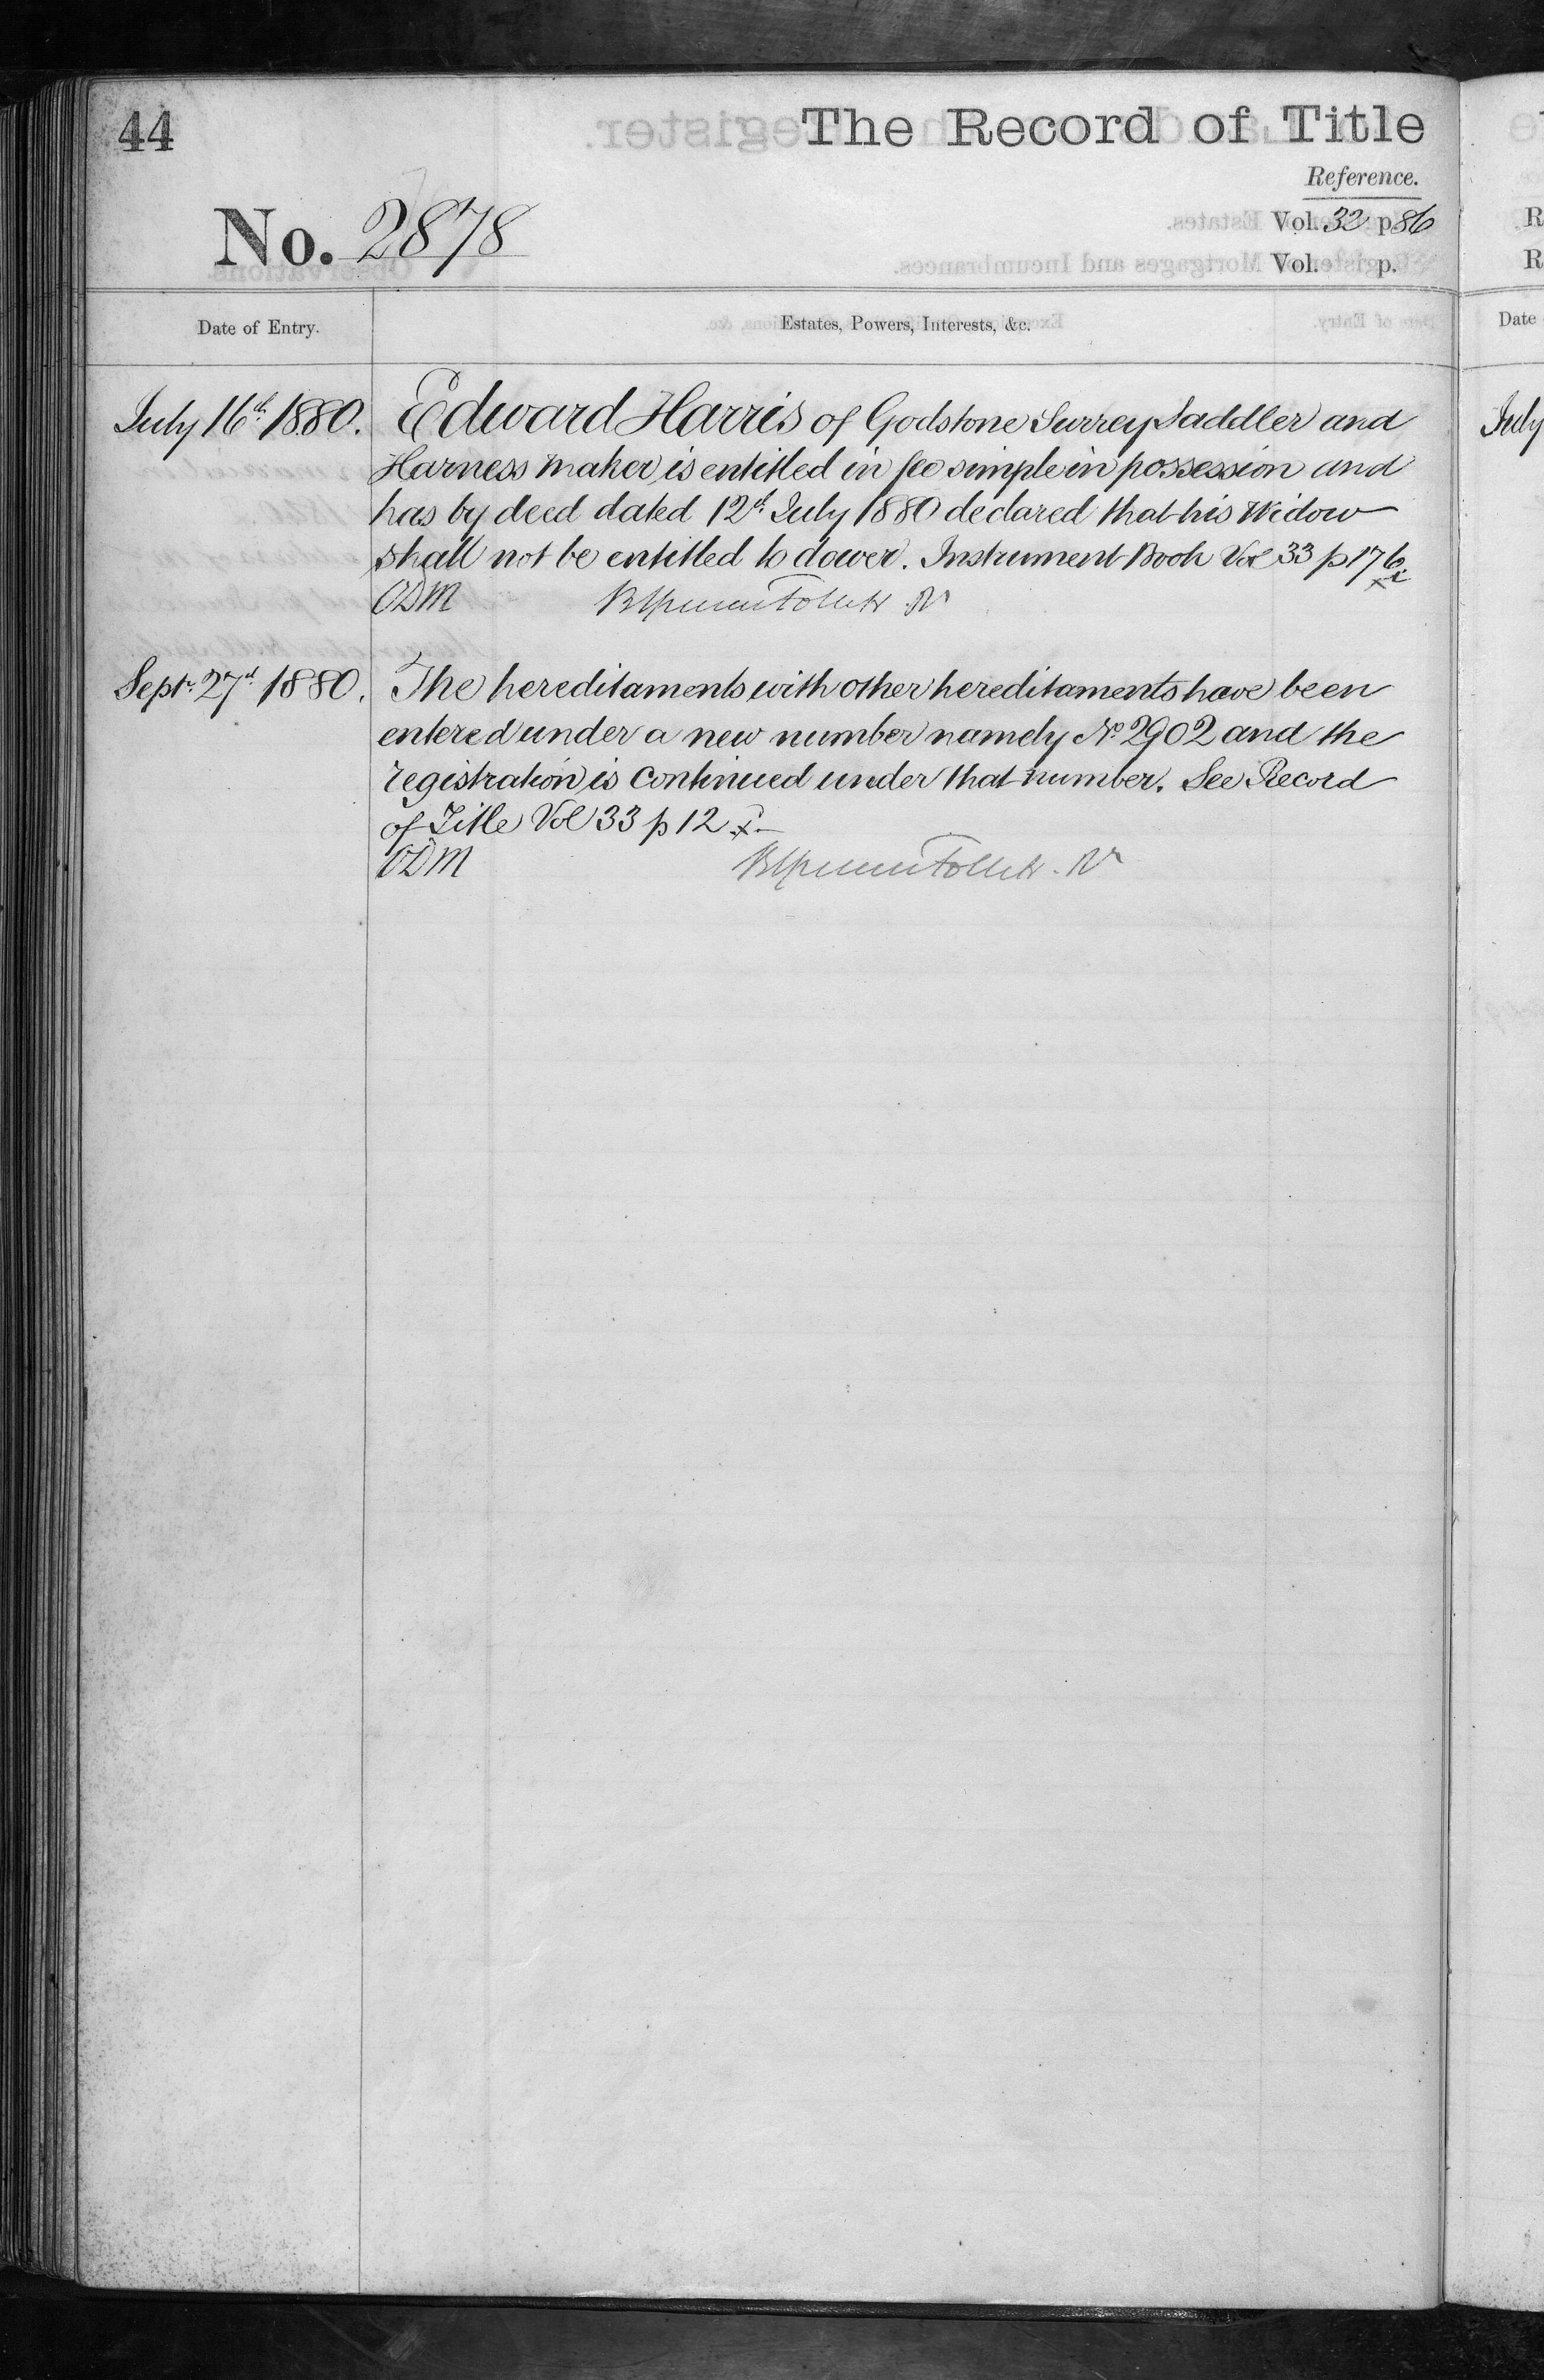 44
The Record of Title
Reference.
No. 2878
Vol. 32 p 86
Vol. p.
Date of Entry.
Estates, Powers, Interests, &c.
July 16th 1880. Edward Harris of Godstone Surrey Saddler and
Harness maker is entitled in fee simple in possession and
has by deed dated 12th July 1880 declared that his Widow
shall not be entitled to dower. Instrument Book Vol 33 p 176
ODM
Sept. 27th 1880. The hereditaments with other hereditaments have been
entered under a new number namely No. 2902 and the
registration is continued under that number. See Record
of Title Vol 33 p 12
ODM
R
R
Date
July